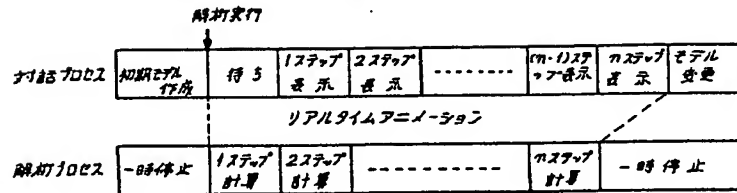 解析実行
対話プロセス
初期モデル
作成
待ち
1ステップ
表示
2ステップ
表示
(n-1)ステ
ップ表示
nステップ
表示
モデル
変更
リアルタイムアニメーション
解析プロセス
一時停止
1ステップ
計算
2ステップ
計算
nステップ
計算
一時停止